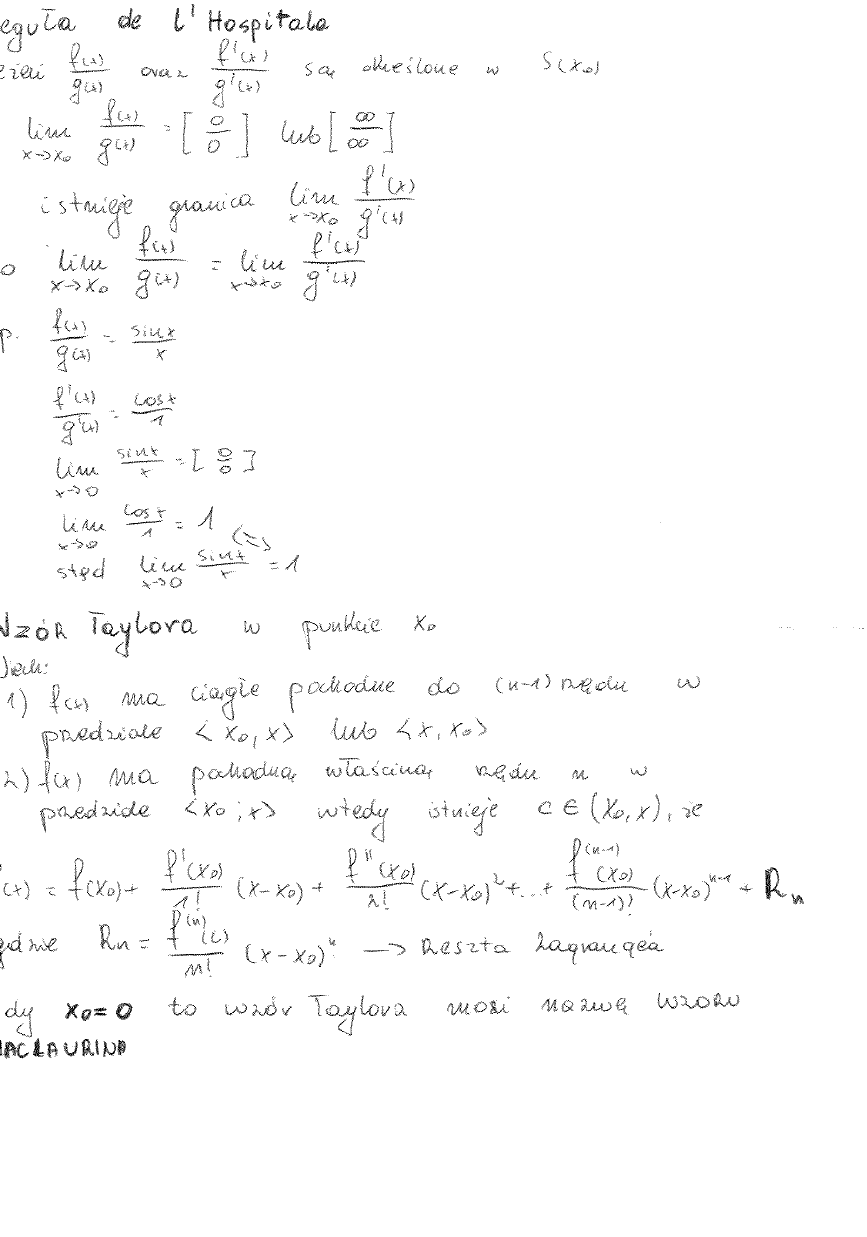 eguła de l'Hospitala
eżeli f(x)/g(x) oraz f'(x)/g'(x) są określone w S(x₀)
lim x→x₀ f(x)/g(x) = [0/0] lub [∞/∞]
istnieje granica lim x→x₀ f'(x)/g'(x)
o lim x→x₀ f(x)/g(x) = lim x→x₀ f'(x)/g'(x)
p. f(x)/g(x) = sinx/x
f'(x)/g'(x) = cosx/1
lim x→0 sinx/x = [0/0]
lim x→0 cosx/1 = 1
(=>)
stąd lim x→0 sinx/x = 1
Wzór Taylora w punkcie x₀
1) f(x) ma ciągłe pochodne do (n-1) rzędu w
przedziale <x₀, x> lub <x, x₀>
2) f(x) ma pochodną właściwą rzędu n w
przedziale <x₀; x> wtedy istnieje c ∈ (x₀, x), że
(x) = f(x₀) + f'(x₀)/1! (x-x₀) + f''(x₀)/2! (x-x₀)² + ... + f⁽ⁿ⁻¹⁾(x₀)/(n-1)! (x-x₀)ⁿ⁻¹ + Rₙ
gdzie Rₙ = f⁽ⁿ⁾(c)/n! (x-x₀)ⁿ → Reszta Lagrange'a
dy x₀=0 to wzór Taylora nosi nazwę wzoru
MACLAURINA